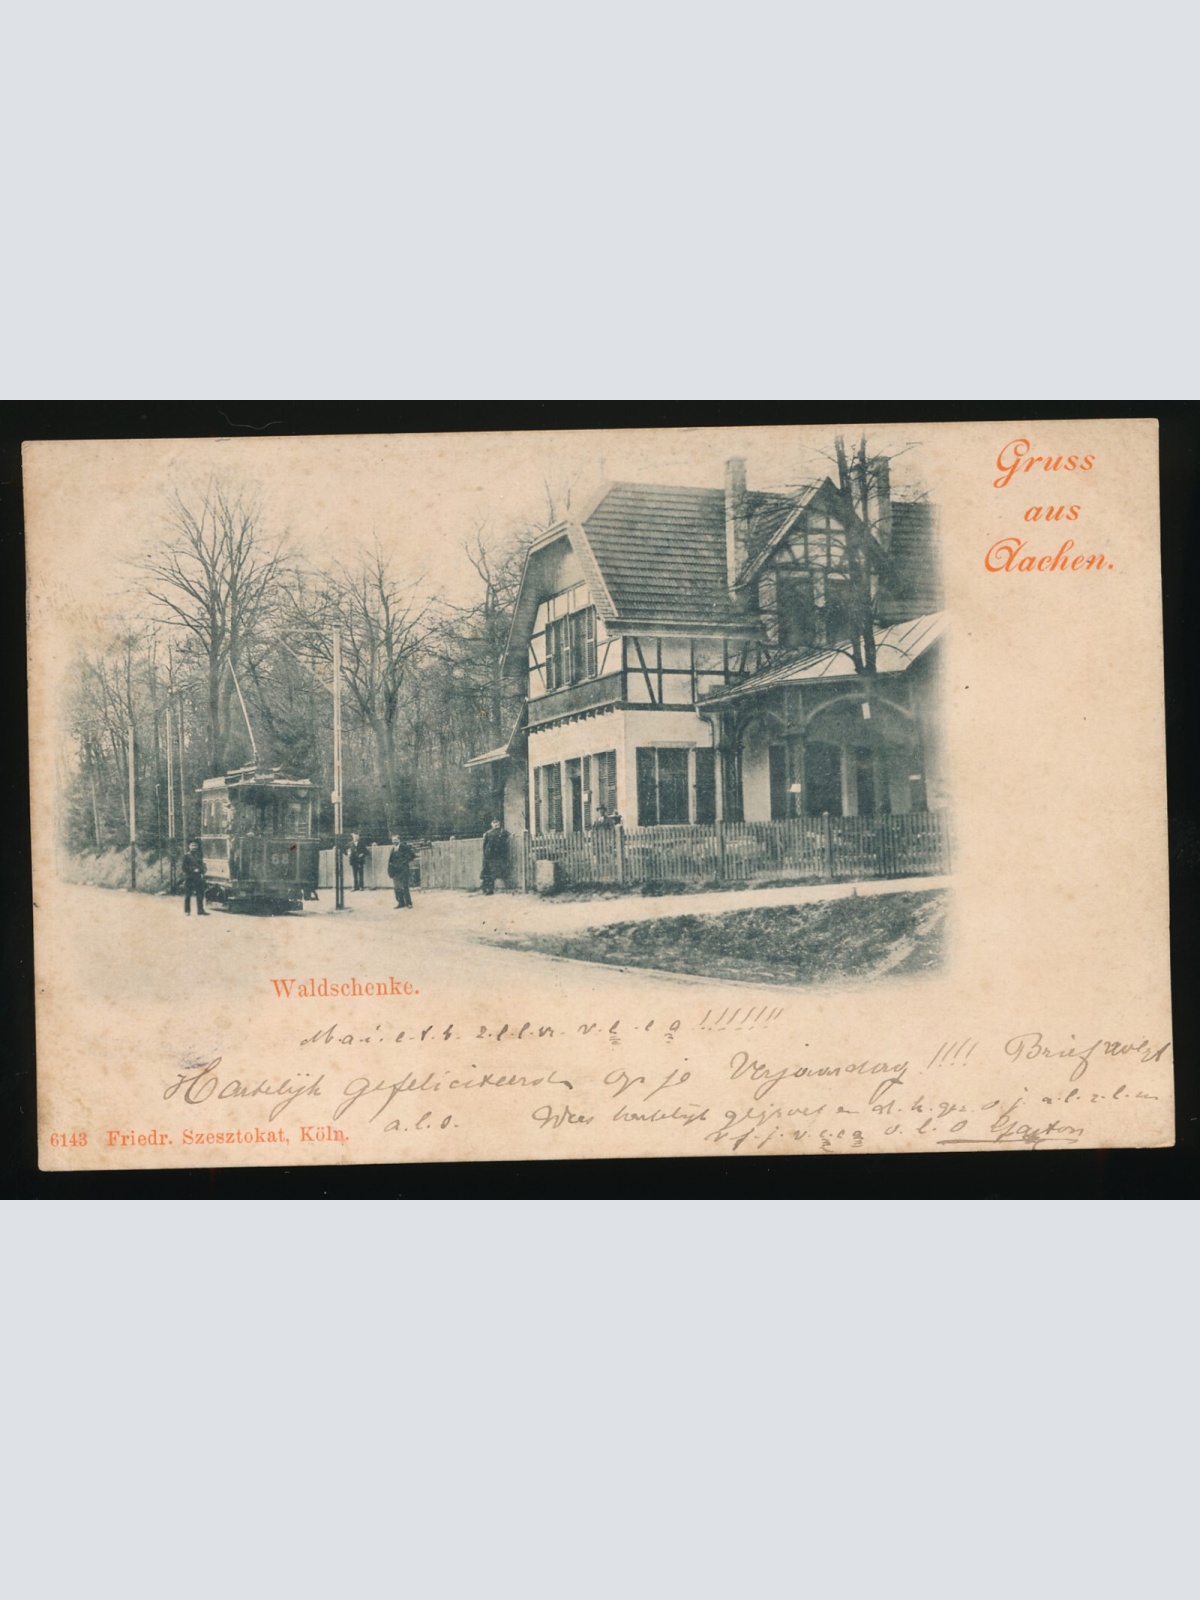 Gruss
aus
Aachen.
68
Waldschenke.
M.a.i. e.t.h. z.l.l.v. v.e.e.a !!!!!!!!
Hartelijk gefeliciteerd op je Verjaardag !!!! Brief volgt
a.l.o. Wees hartelijk gegroet en
o.l.o Gaston
6143 Friedr. Szesztokat, Köln.